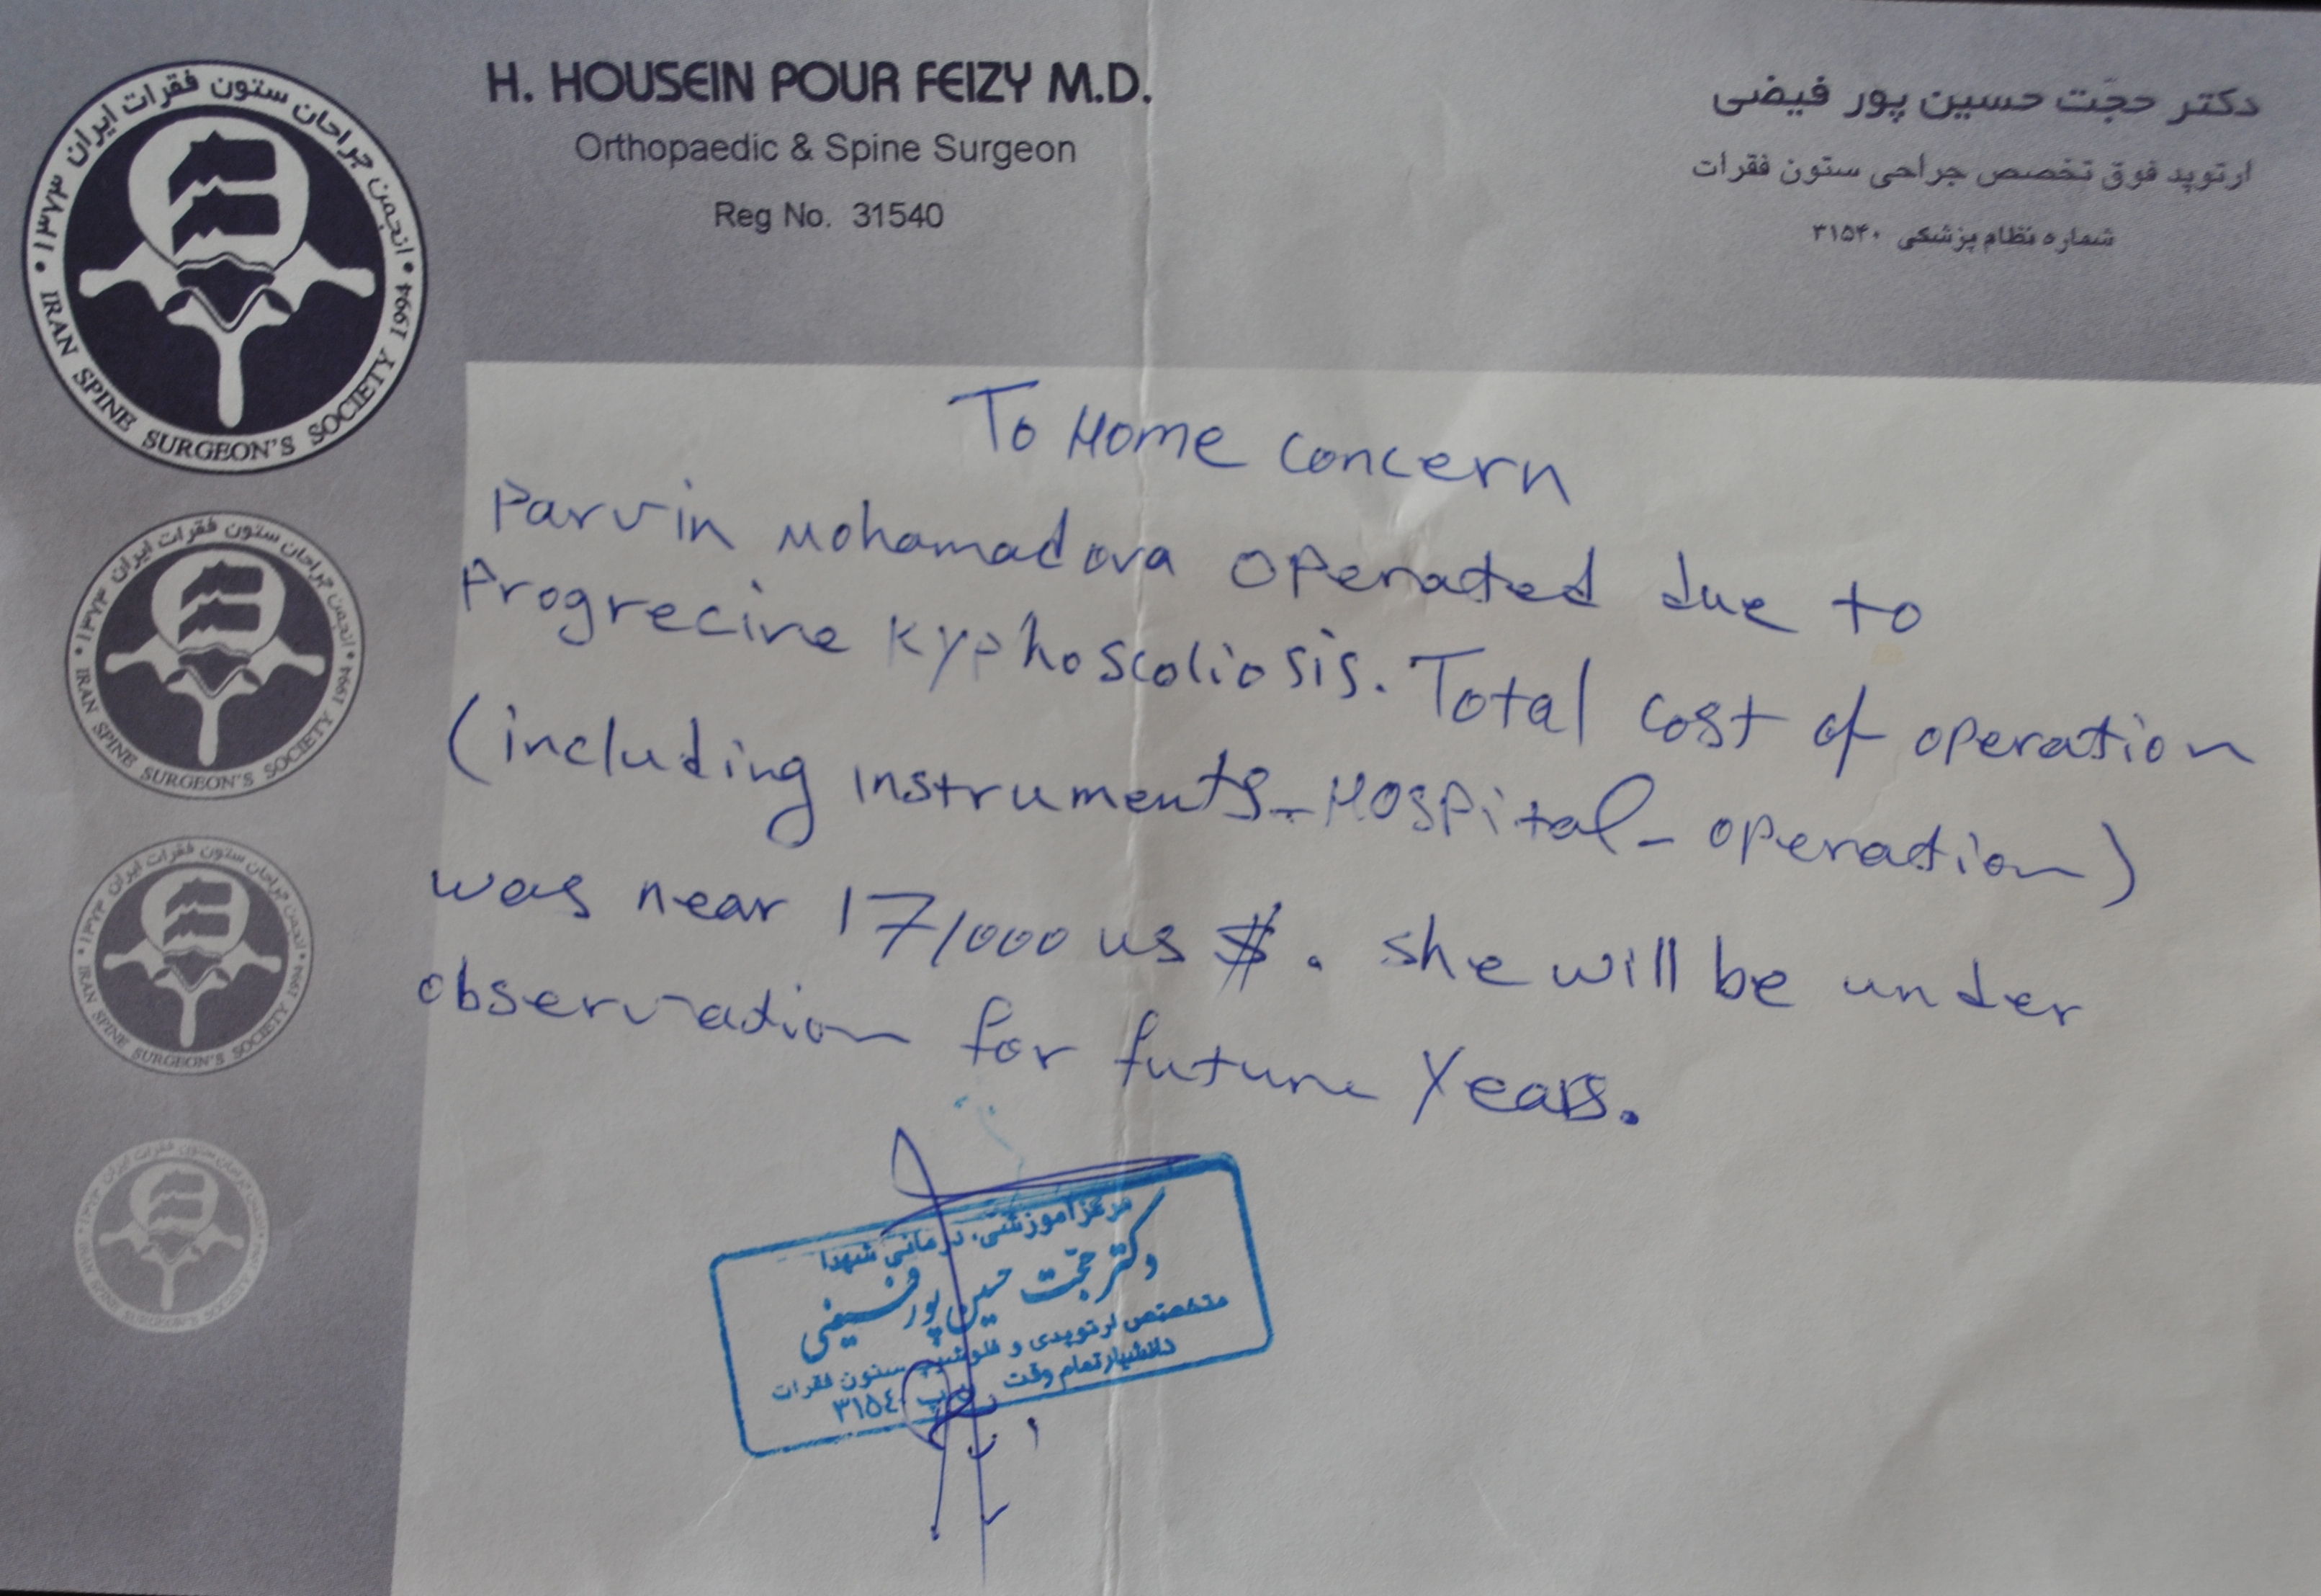 انجمن جراحان ستون فقرات ایران ۱۳۷۳
IRAN SPINE SURGEON'S SOCIETY 1994
H. HOUSEIN POUR FEIZY M.D.
Orthopaedic & Spine Surgeon
Reg No. 31540
دکتر حجّت حسین پور فیضی
ارتوپد فوق تخصص جراحی ستون فقرات
شماره نظام پزشکی ۳۱۵۴۰
انجمن جراحان ستون فقرات ایران ۱۳۷۳
IRAN SPINE SURGEON'S SOCIETY 1994
انجمن جراحان ستون فقرات ایران ۱۳۷۳
IRAN SPINE SURGEON'S SOCIETY 1994
انجمن جراحان ستون فقرات ایران ۱۳۷۳
IRAN SPINE SURGEON'S SOCIETY 1994
To Home concern
Parvin Mohamadova operated due to
Progrecive Kyphoscoliosis. Total cost of operation
(including instruments-Hospital-operation)
was near 17/000 us $. she will be under
observation for future Years.
مرکز آموزشی، درمانی شهدا
دکتر حجت حسین پور فیضی
متخصص ارتوپدی و فلوشیپ ستون فقرات
دانشیار تمام وقت
۳۱۵٤۰